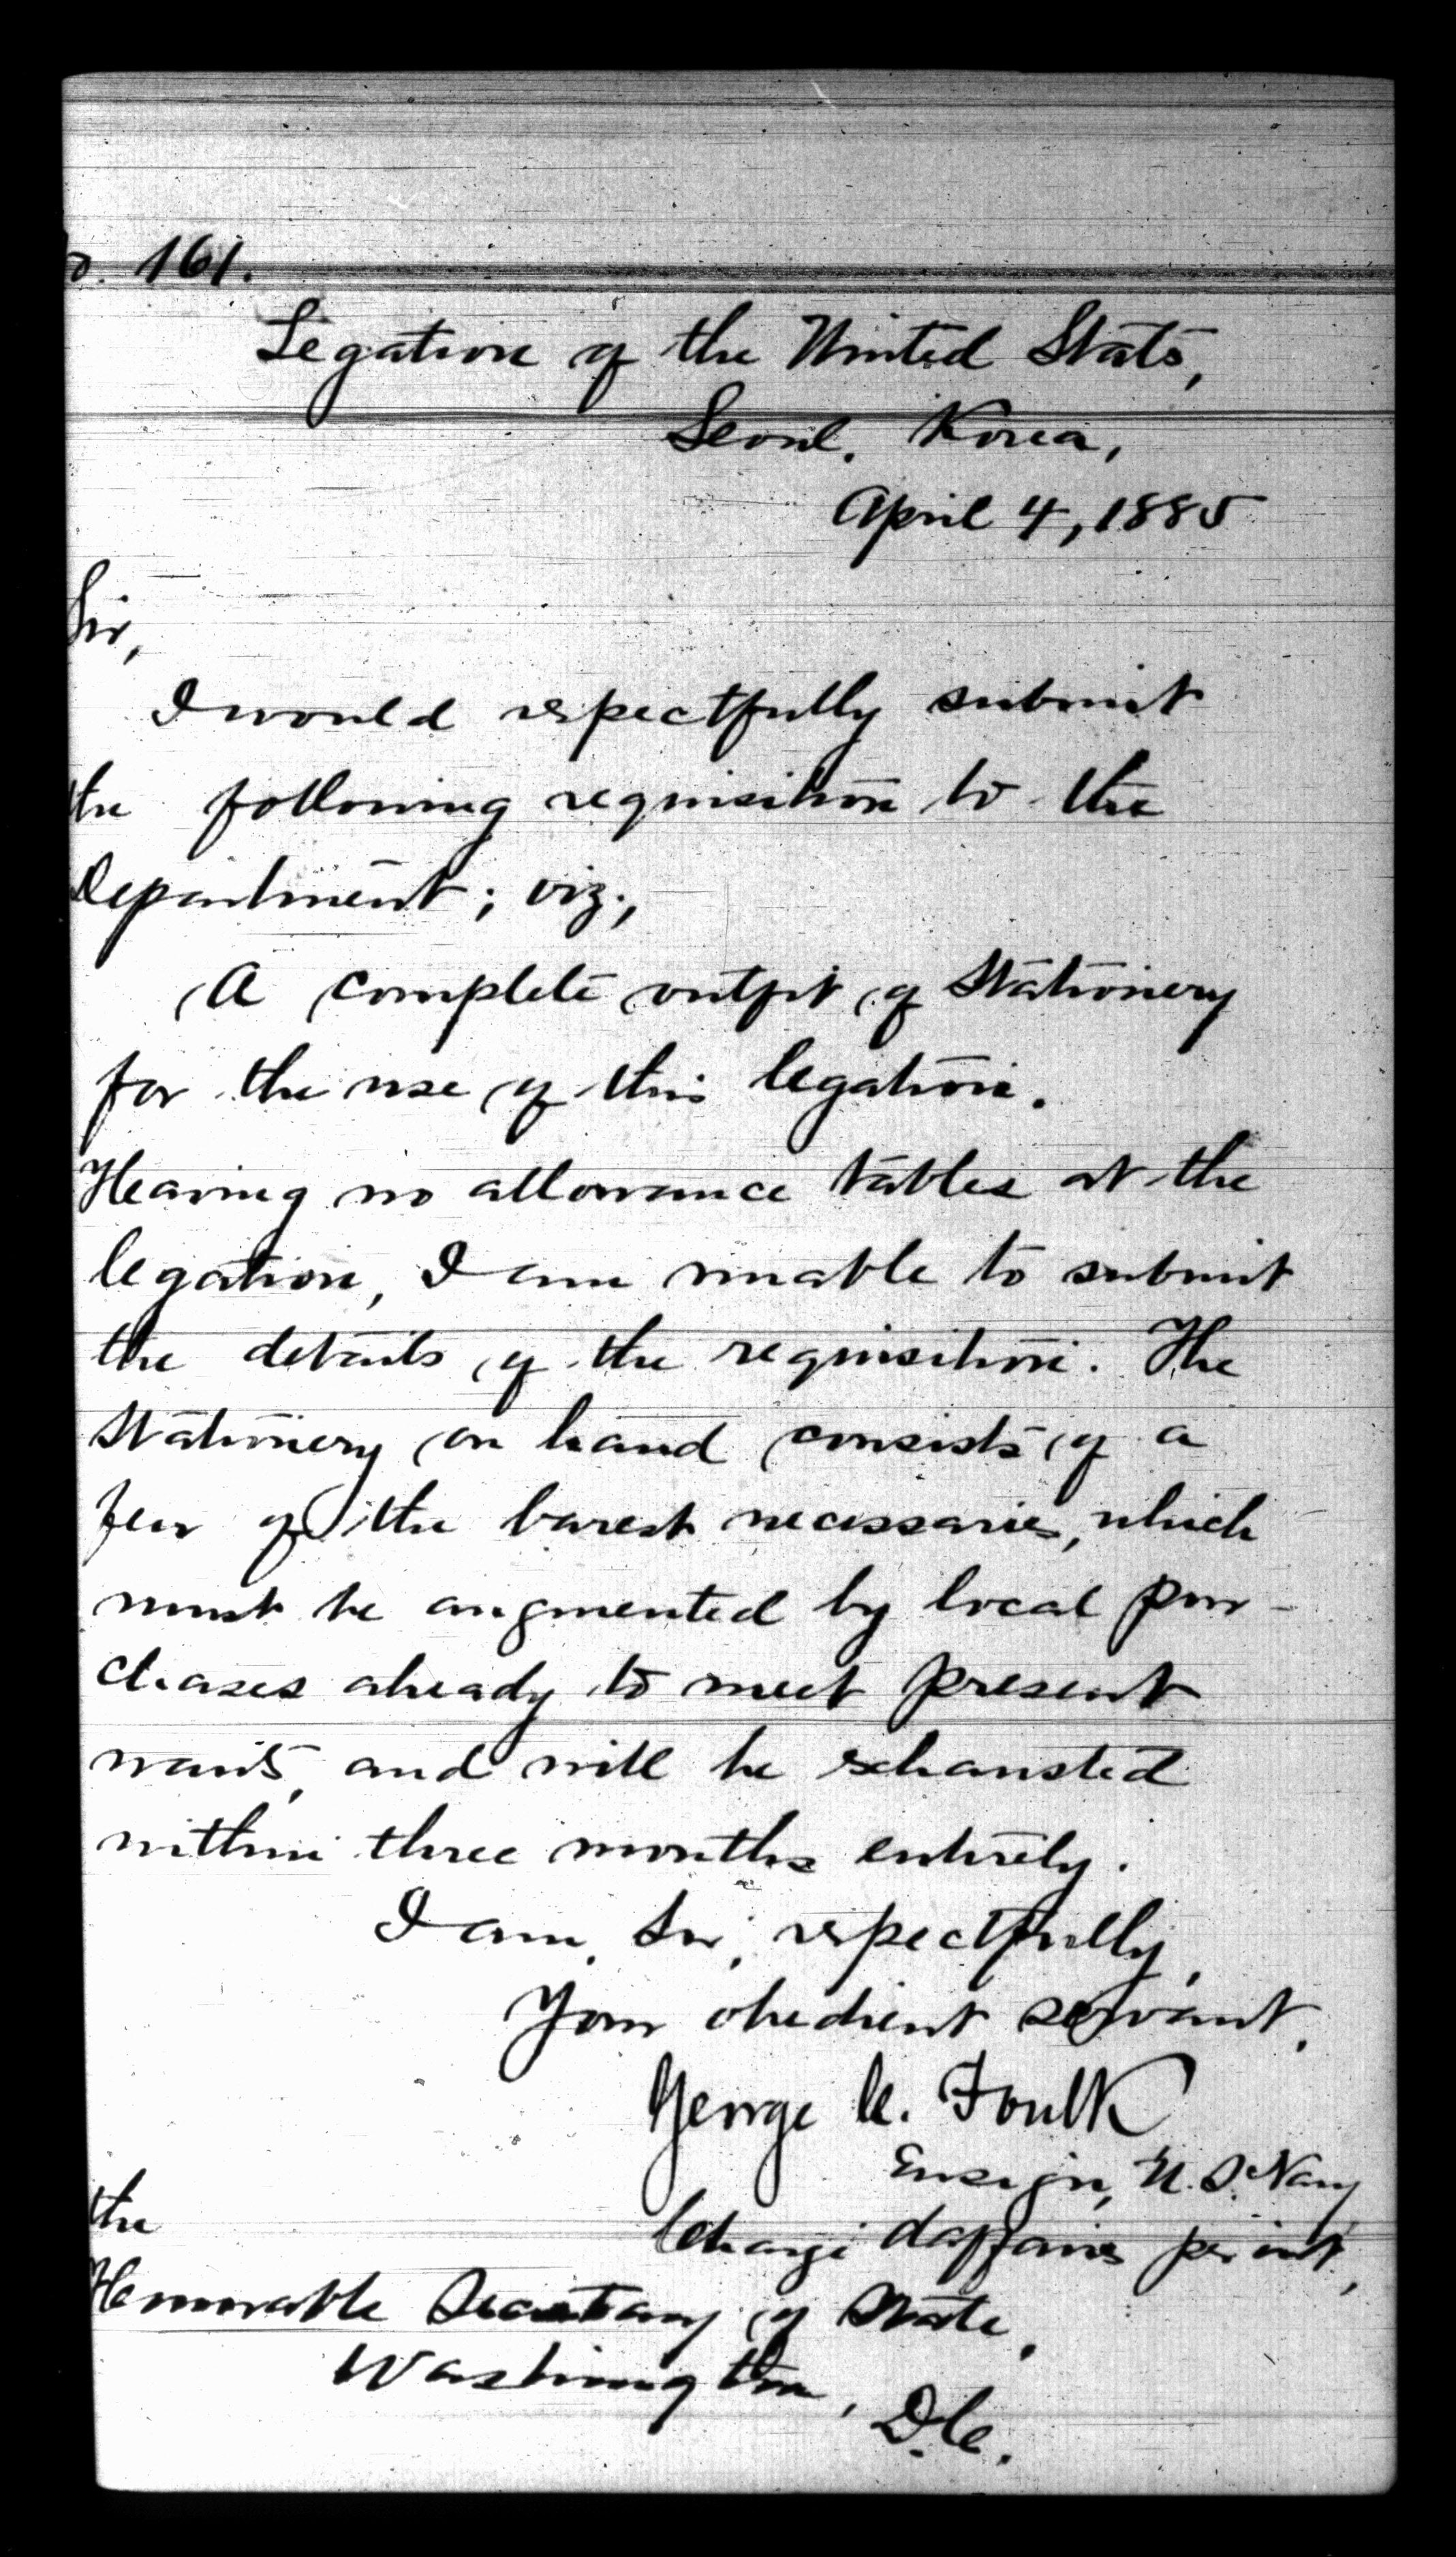 o. 161.
Legation of the United States,
Seoul, Korea,
April 4, 1885
Sir,
I would respectfully submit
the following requisition to the
Department; viz.,
A complete outfit of Stationery
for the use of this legation.
Having no allowance tables at the
legation, I am unable to submit
the details of the requisition. The
Stationery on hand consists of a
few of the barest necessaries, which
must be augmented by local pur-
chases already to meet present
wants, and will be exhausted
within three months entirely.
I am, Sir, respectfully,
Your obedient servant,
George C. Foulk
Ensign, U.S. Navy
Chargé d'affaires per int,
the
Honorable Secretary of State,
Washington, D.C.